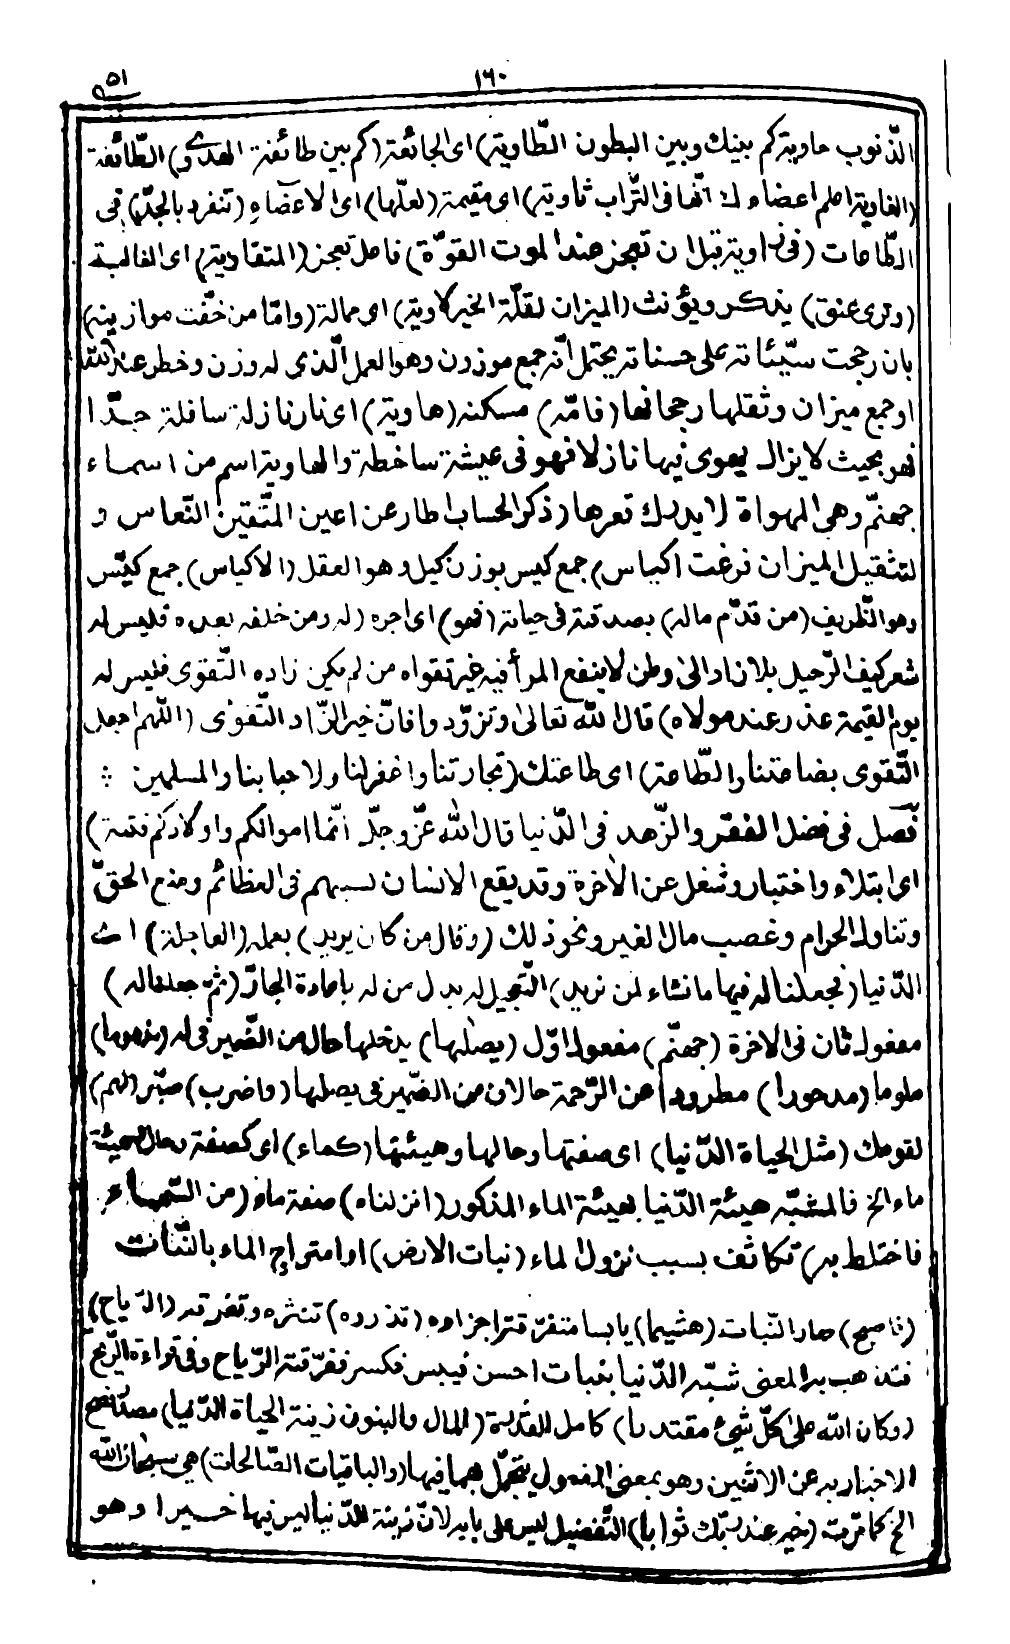 ١٦٠
٥١
الذّنوب حاوية كم بينك وبين البطون الطّاوية) اى الجائعة (كم بين طائفة الهدى و) الطّائفة
(الغاوية اعلم اعضاءك انّها فى التّراب ثاوية) اى مقيمة (لعلّها) اى الاعضاء (تنفرد بالجدّ) فى
الطّاعات (فى زاوية قبل ان تعجز عند الموت القوّة) فاعل تعجز (المتقاوية) اى الغالبة
(وترى عنق) يذكر ويؤنث (الميزان لقلّة الخير لاوية) اى ممالة (وامّا من خفّت موازينه)
بان رجحت سيّئاته على حسناته يحتمل انّه جمع موزون وهو العمل الّذى له وزن وخطر عند الله
او جمع ميزان وثقلها رجحانها (فامّه) مسكنه (هاوية) اى نار نازلة سافلة جدّا
فهو بحيث لا يزال يهوى فيها نازلا فهو فى عيشة ساخطة والهاوية اسم من اسماء
جهنّم وهى المهواة لا يدرك قعرها (ذكر الحساب اطار عن اعين المتّقين النّعاس و
لتثقيل الميزان فرغت اكياس) جمع كيس بوزن كيل وهو العقل (الاكياس) جمع كيّس
وهو الظّريف (من قدّم ماله) بصدقته فى حياته (فهو) اى اجره (له ومن خلفه بعده فليس له
شعر كيف الرّحيل بلا زاد الى وطن لا ينفع المرأ فيه غير تقواه من لم يكن زاده التّقوى فليس له
يوم القيمة عذر عند مولاه) قال الله تعالى وتزوّدوا فانّ خير الزّاد التّقوى (اللّهم اجعل
التّقوى بضاعتنا والطّاعة) اى طاعتك (تجارتنا واغفر لنا ولاحبابنا والمسلمين
فصل فى فضل الفقر والزّهد فى الدّنيا قال الله عزّ وجلّ انّما اموالكم واولادكم فتنة)
اى ابتلاء واختبار وشغل عن الاخرة وقد يقع الانسان بسببهم فى العظائم ومنع الحقّ
وتناول الحرام وغصب مال الغير ونحو ذلك (وقال من كان يريد) بعمله (العاجلة) اى
الدّنيا (نجعلنا له فيها ما نشاء لمن نريد) التّعجيل له بدل من له باعادة الجارّ (ثمّ جعلنا له)
مفعول ثان فى الاخرة (جهنّم) مفعول اوّل (يصلها) يدخلها حال من الضّمير فى له (مذموما)
ملوما (مدحورا) مطرودا عن الرّحمة حالان من الضّمير فى يصلها (واضرب) صيّر (لهم)
لقومك (مثل الحياة الدّنيا) اى صفتها وحالها وهيئتها (كماء) اى كصفة وحال وهيئة
ماء الخ فالمشبّه هيئة الدّنيا بهيئة الماء المذكور (انزلناه) صفة ماء (من السّماء
فاختلط به) تكاثف بسبب نزول الماء (نبات الارض) او امتراج الماء بالنّبات
(فاصبح) صار النّبات (هشيما) يابسا متفرّقة اجزاوه (تذروه) تنثره وتفرّقه (الرّياح)
فتذهب به المعنى شبّه الدّنيا بنبات احسن فيبس فكسر ففرّقته الرّياح وفى قراءة الرّيح
(وكان الله على كلّ شيئ مقتدرا) كامل القدرة (المال والبنون زينة الحياة الدّنيا) مصدر فصح
الاخبار به عن الاثنين وهو بمعنى المفعول يتجمّل بهما فيها (والباقيات الصّالحات) هى سبحان الله
الخ كما مرّت (خير عند ربّك ثوابا) التّفضيل ليس على بابه لانّ زينة الدّنيا ليس فيها خير او هو